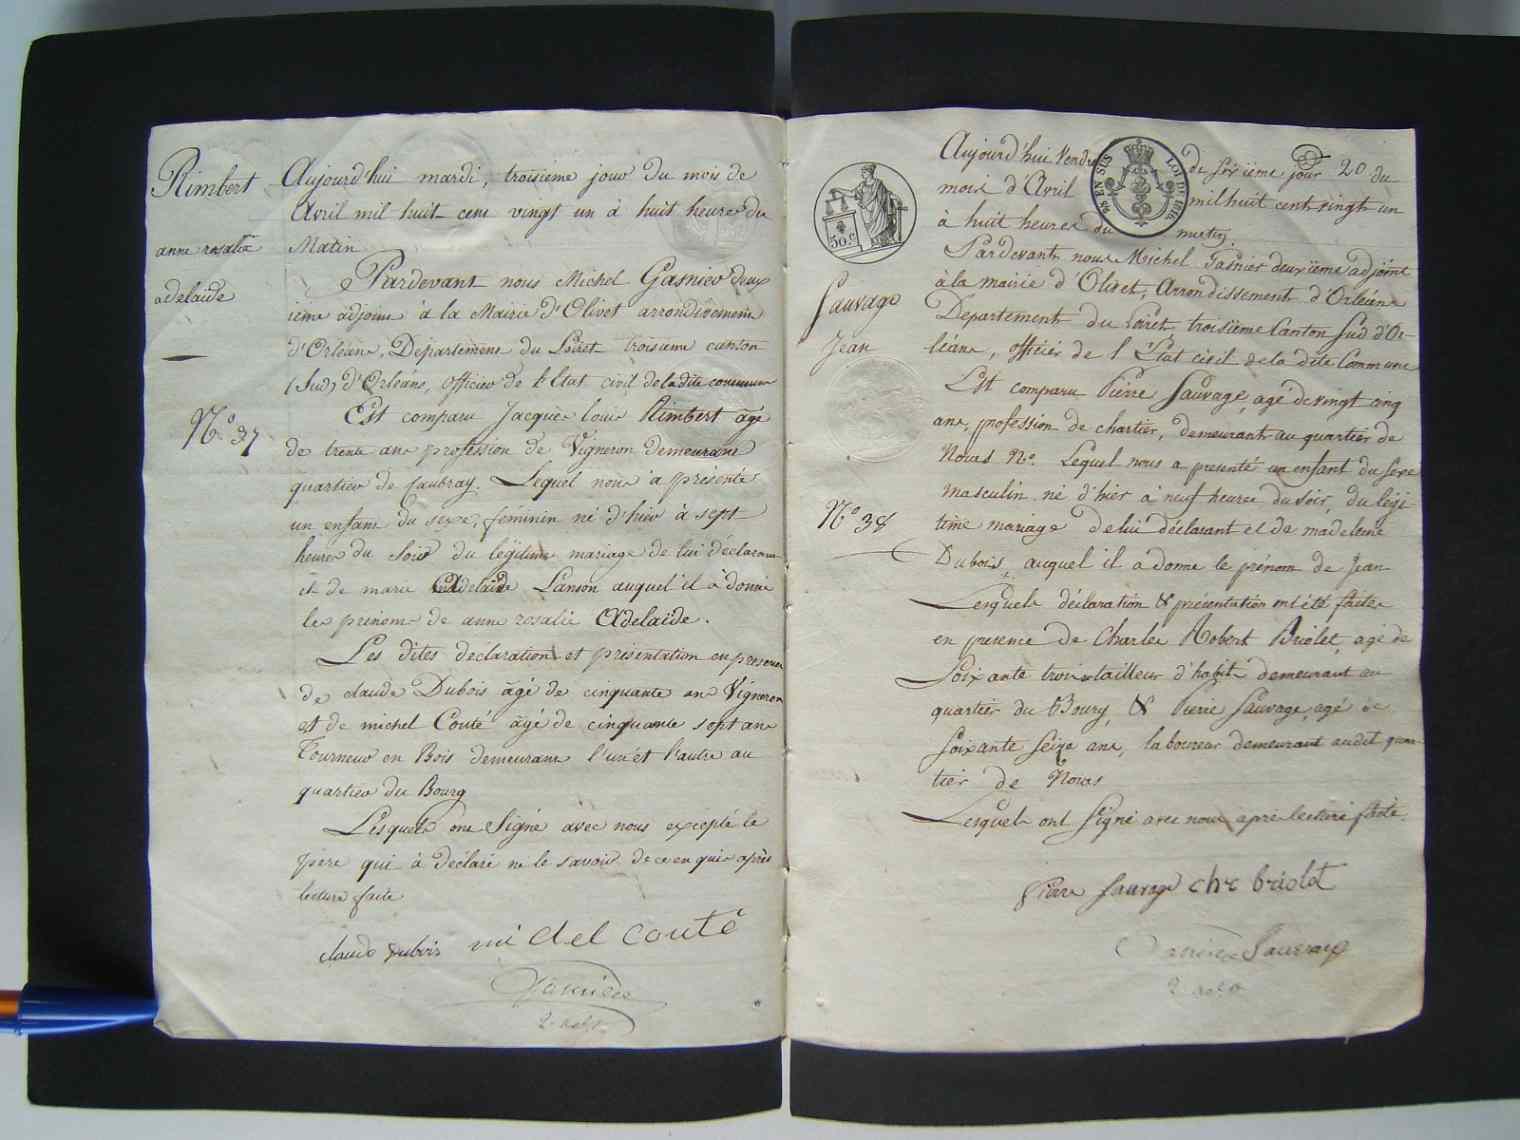 Rimbert
anne rosalie
adelaide
N.º 37
Aujourd'hui mardi, troisième jour du mois de
Avril mil huit cent vingt un à huit heures du
Matin
Pardevant nous Michel Gasnier deux
ième adjoint à la Mairie d'Olivet arrondissement
d'Orléans, Département du Loiret troisième canton
(Sud) d'Orléans, officier de l'Etat civil de la dite commune
Est comparu Jacques louis Rimbert âgé
de trente ans profession de Vigneron demeurant
quartier de Caubray. Lequel nous à présenté
un enfant du sexe, féminin né d'hier à sept
heures du Soir du légitime mariage de lui déclarant
et de marie Adelaide Lanson auquel il à donné
les prénoms de anne rosalie Adelaide.
Les dites déclaration et présentation en presence
de claude Dubois âgé de cinquante ans Vigneron
et de michel Couté âgé de cinquante sept ans
Tourneur en Bois demeurant l'un et l'autre au
quartier du Bourg
Lesquels ont Signé avec nous excepté le
père qui à déclaré ne le savoir de ce enquis après
lecture faite
claude dubois michel couté
Gasnier
2.e adj.t
50.c
EN SUS
LOI DE 1816
Sauvage
Jean
N.º 38
Aujourd'hui Vendredi
de sixième jour 20 du
mois d'Avril mil huit cent vingt un
à huit heures du matin.
Pardevant nous Michel Gasnier deuxième adjoint
à la mairie d'Olivet, Arrondissement d'Orléans
Département du Loiret troisième Canton Sud d'Or-
léans, officier de l'Etat civil de la dite Commune
Est comparu Pierre Sauvage, agé de vingt cinq
ans, profession de chartier, demeurant au quartier de
Nouas N.º Lequel nous a presenté un enfant du sexe
masculin né d'hier à neuf heures du soir, du légi-
time mariage de lui déclarant et de madeleine
Dubois, auquel il a donné le prénom de Jean
Lesquels déclaration & présentation ont été faites
en presence de Charles Robert Briolet, agé de
Soixante trois tailleur d'habit demeurant au
quartier du Bourg, & Pierre Sauvage, agé de
soixante seize ans, laboureur demeurant audit quar-
tier de Nouas
Lesquels ont signé avec nous après lecture faite.
Piere sauvage chr briolet
Gasnier Sauvage
2.e adj.t